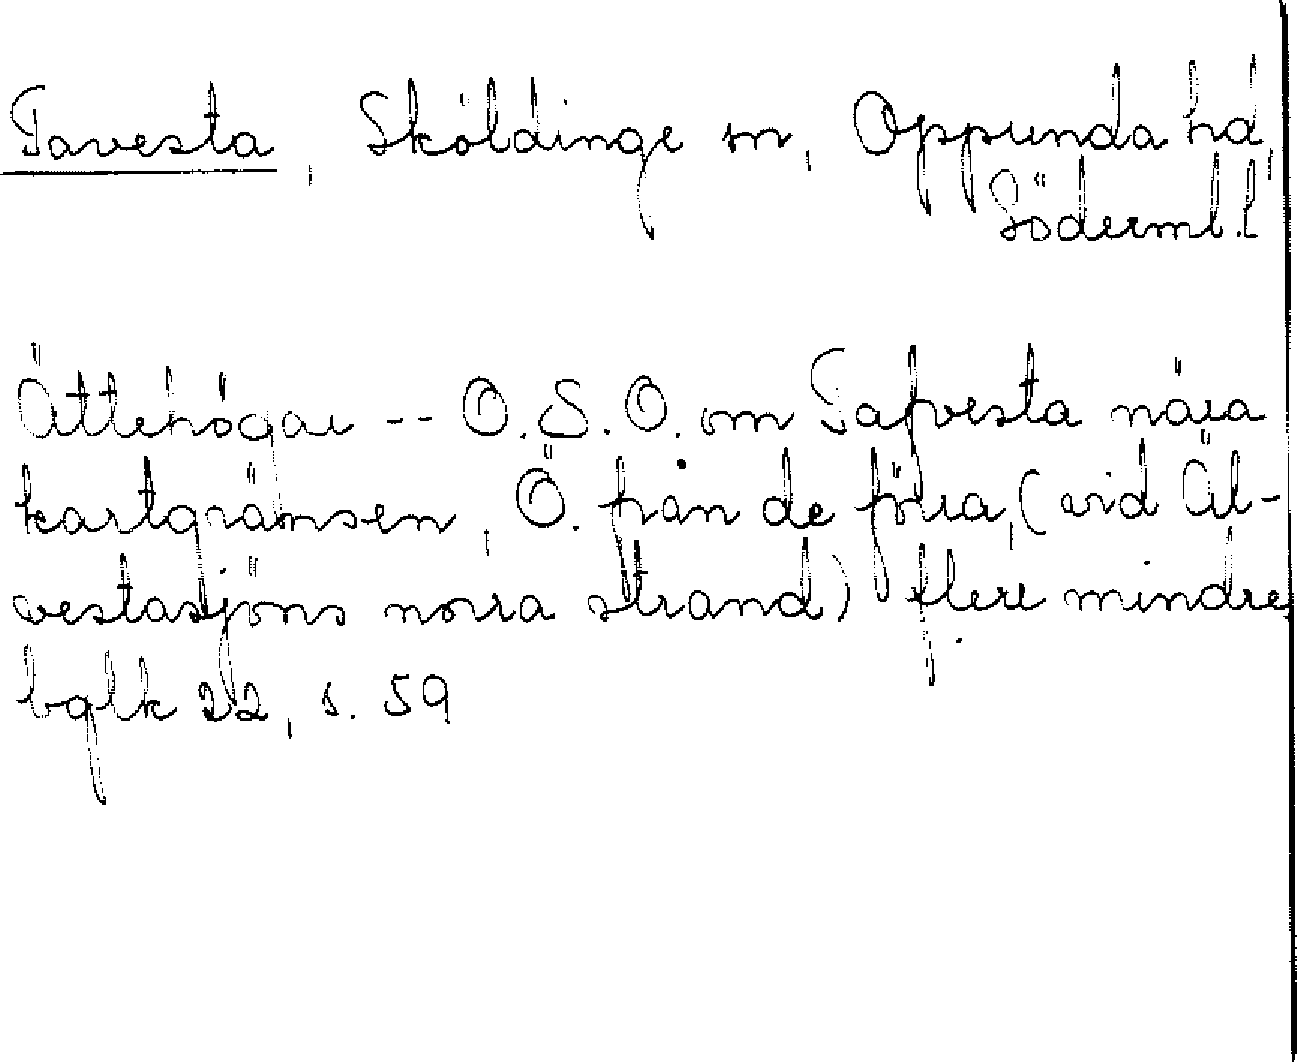 Tavesta, Sköldinge sn, Oppunda hd,
Söderml.l
Ättehögar -- O.S.O. om Tafvesta nära
kartgränsen, Ö. från de förra, (vid Äl-
vestasjöns norra strand) flere mindre.
bglk 22, s. 59